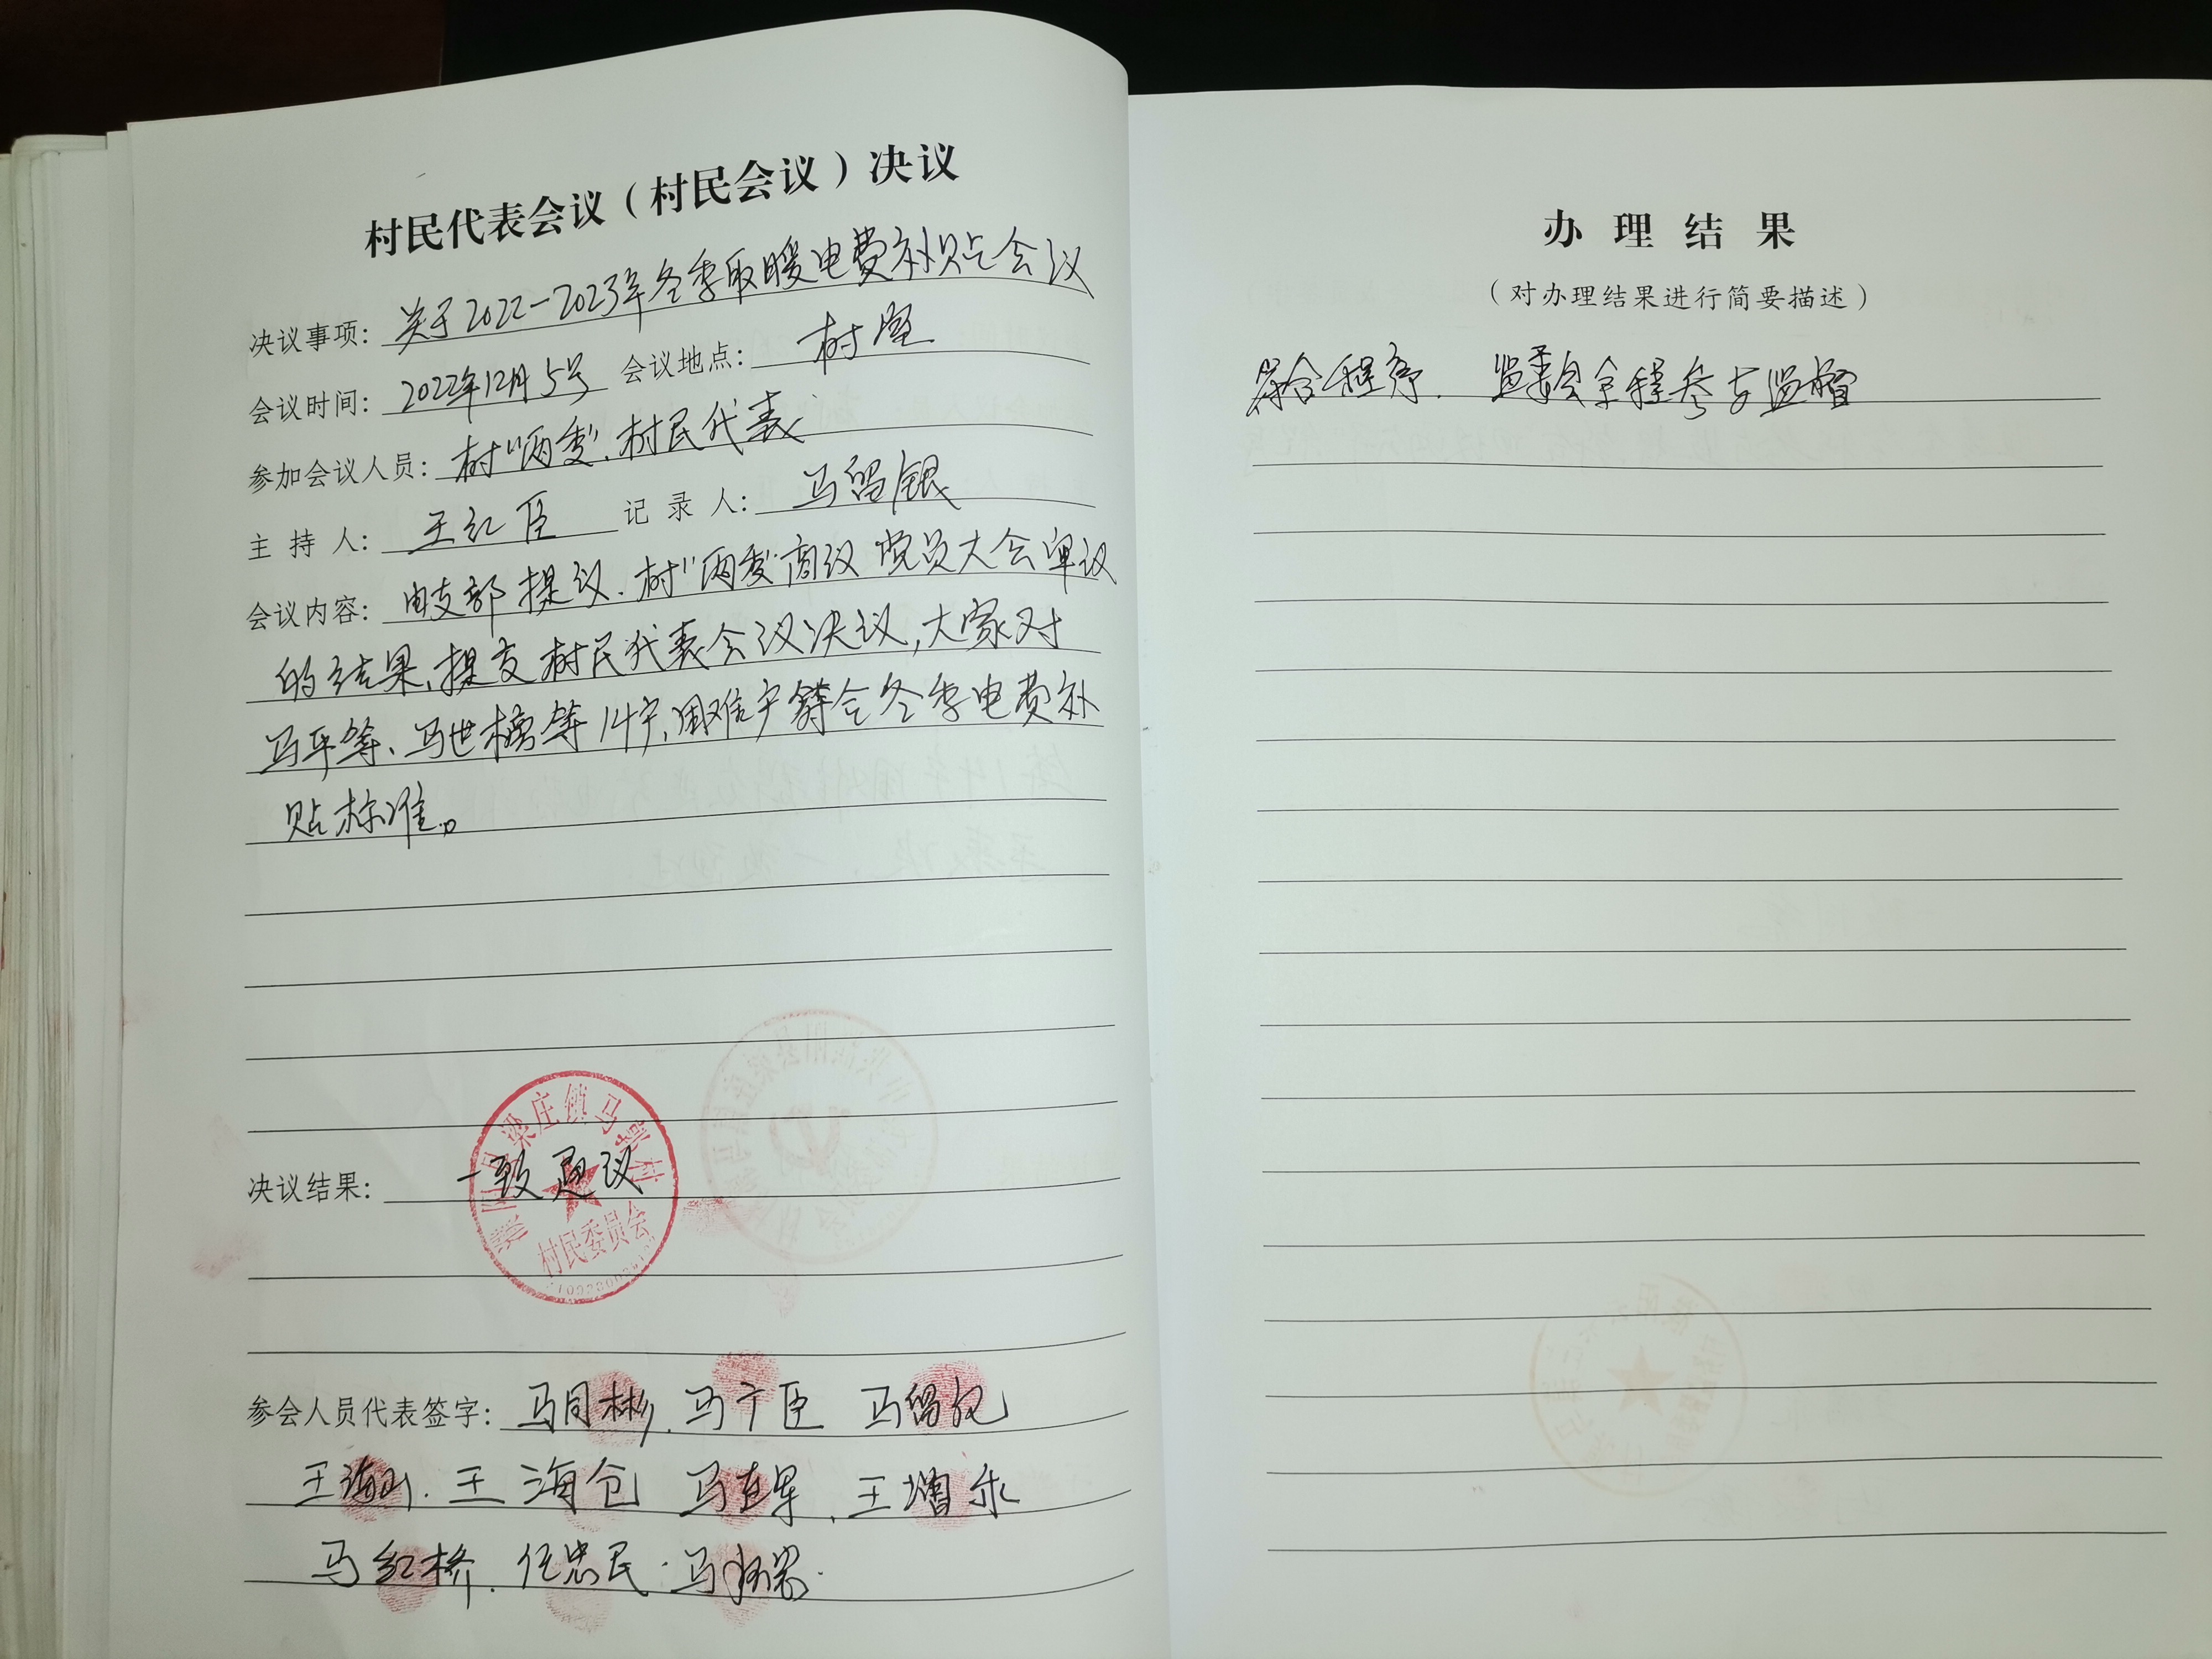 村民代表会议（村民会议）决议
决议事项：关于2022-2023年冬季取暖电费补贴会议
会议时间：2022年12月5号 会议地点：村室
参加会议人员：村“两委”、村民代表
主持人：王红臣 记录人：马留银
会议内容：由支部提议、村“两委”商议 党员大会审议
的结果、提交村民代表会议决议，大家对
马平等、马世榜等14户、困难户符合冬季电费补
贴标准。
梁庄镇马
村民委员会
决议结果：一致通议
参会人员代表签字：马同彬、马广臣 马留纪
王海山、王海仓 马连军、王增永
马红桥、任忠民、马
办理结果
（对办理结果进行简要描述）
符合程序、监委会全程参与监督